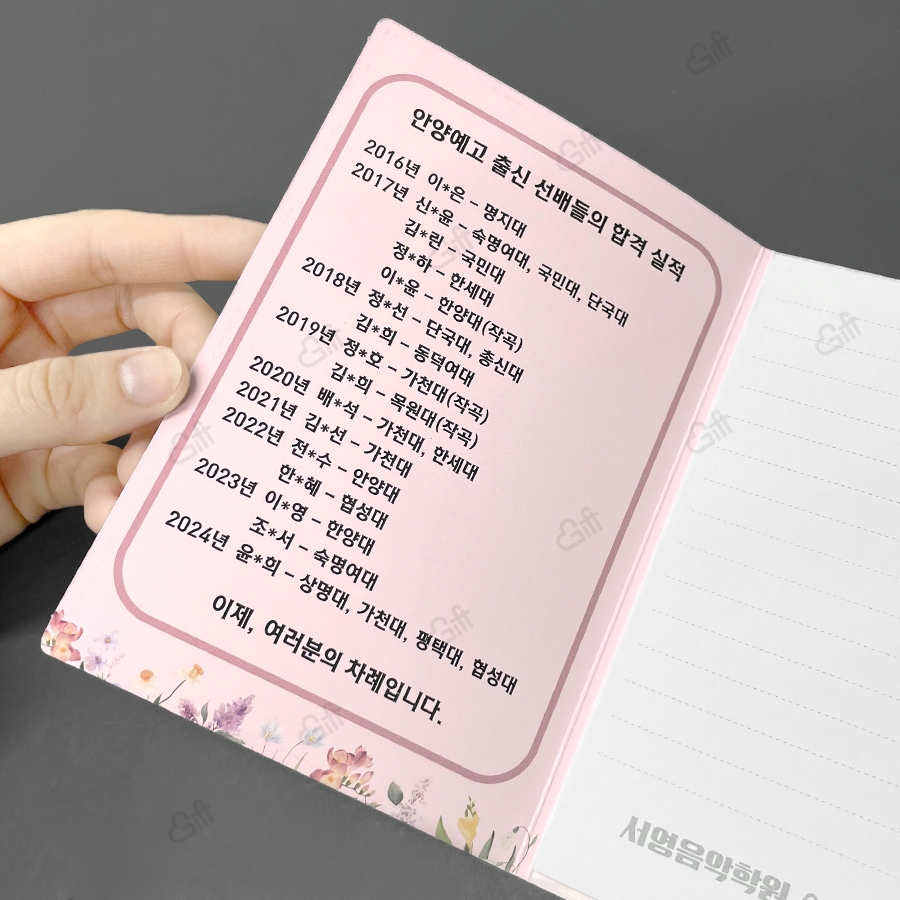 안양예고 출신 선배들의 합격 실적
2016년 이*은 - 명지대
2017년 신*윤 - 숙명여대, 국민대, 단국대
김*린 - 국민대
정*하 - 한세대
이*윤 - 한양대(작곡)
2018년 정*선 - 단국대, 총신대
김*희 - 동덕여대
2019년 정*호 - 가천대(작곡)
김*희 - 목원대(작곡)
2020년 배*석 - 가천대, 한세대
2021년 김*선 - 가천대
2022년 전*수 - 안양대
한*혜 - 협성대
2023년 이*영 - 한양대
조*서 - 숙명여대
2024년 윤*희 - 상명대, 가천대, 평택대, 협성대
이제, 여러분의 차례입니다.
서영음악학원
Gift
Gift
Gift
Gift
Gift
Gift
Gift
Gift
Gift
Gift
Gift